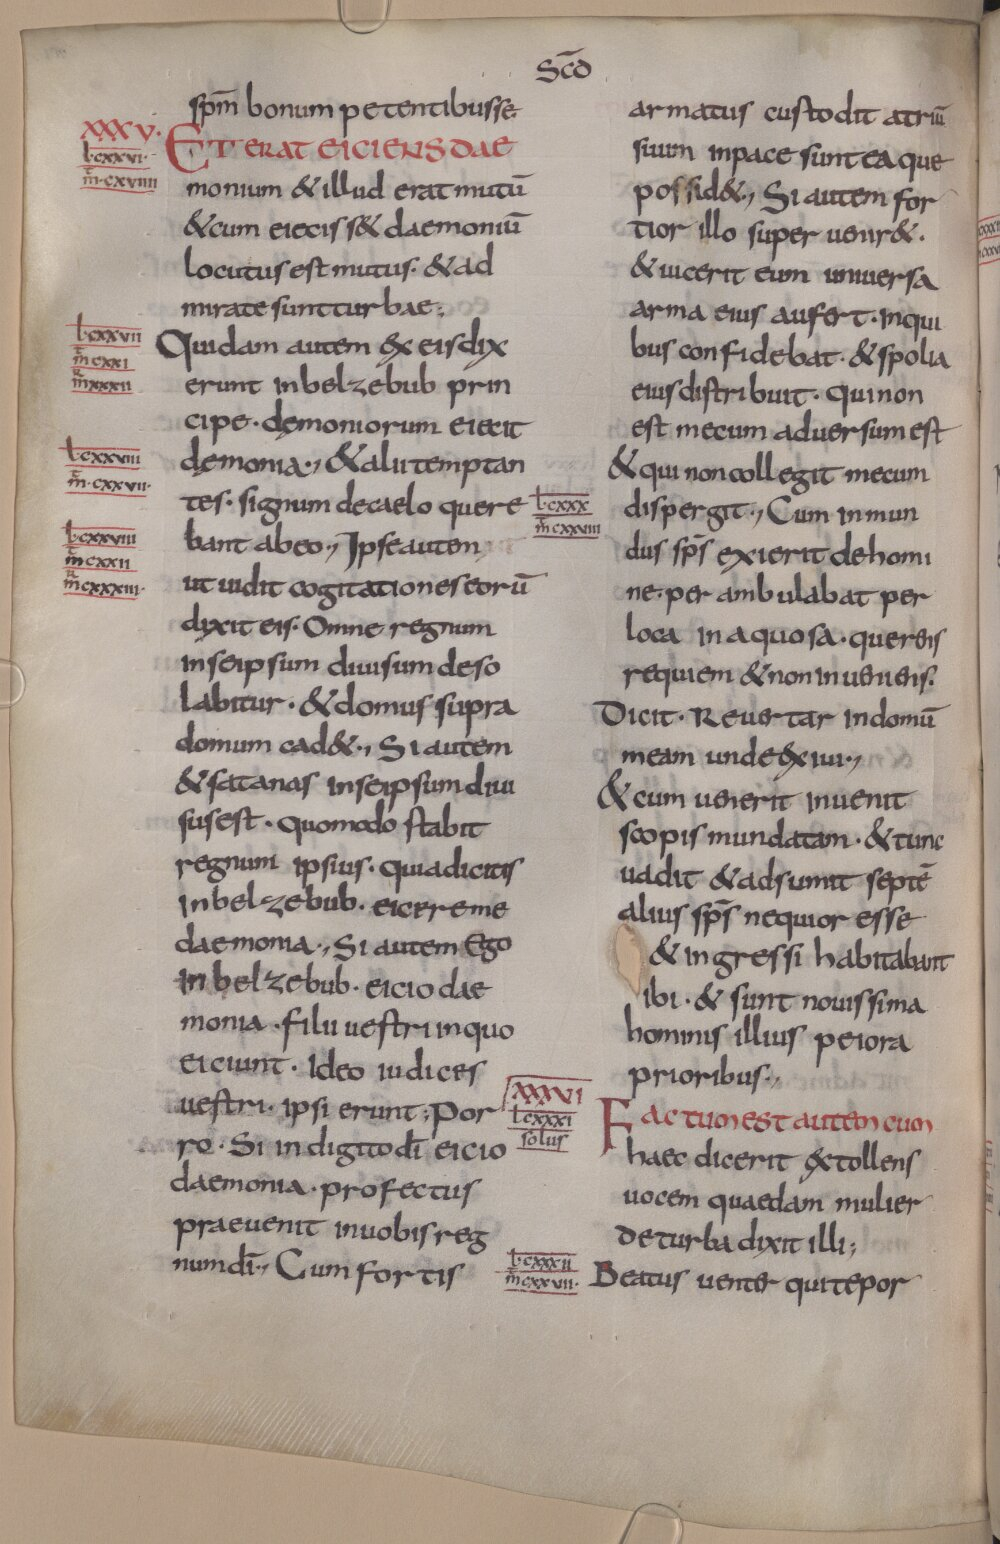 Scd̄
spm̄ bonum petentibusse;
XXXV.
l·cxxvi·
m̄·cxviiii
ET ERAT EICIENS DAE
monium & illud erat mutū
& cum eiecisſ& daemoniū
locutus est mutus. & ad
mirate sunt turbae;
l·cxxvii
m̄ cxxi
m̄xxxii
Quidam autem ex eis dix
erunt in belzebub prin
cipe. demoniorum eiecit
l·cxxviii
m̄·cxxvii·
demonia., & alii temptan
tes. signum de caelo quere
bant ab eo., Ipse autem
l·cxxviiii
m̄cxxii
m̄cxxxiii·
ut uidit cogitationes eorū
dixit eis. Omne regnum
in seipsum diuisum deso
labitur. & domus supra
domum cad&., Si autem
& satanas in seipsum diui
sus est. quomodo stabit
regnum ipsius. quia dicitis
in belzebub. eicere me
daemonia., Si autem Ego
in belzebub. eicio dae
monia. filii uestri in quo
eiciunt. Ideo iudices
uestri. ipsi erunt; Por
ro. Si in digito dī eicio
daemonia. profectus
praeuenit in uobis reg
num dī., Cum fortis
armatus custodit atriū
suum in pace sunt ea que
possid&., Si autem for
tior illo super uenir&.
& uicerit eum uniuersa
arma eius aufert. in qui
bus confidebat. & spolia
eius distribuit. Qui non
est mecum aduersum est
& qui non collegit mecum
l·cxxx
m̄cxxviii
dispergit., Cum inmun
dus sps̄ exierit de homi
ne. per ambulabat per
loca inaquosa. querens
requiem & non inueniens.
Dicit. Reuertar in domū
meam unde exiui.,
& cum uenerit inuenit
scopis mundatam. & tunc
uadit & adsumit septē
alius sps̄ nequior esse
& ingressi habitabant
ibi. & sunt nouissima
hominis illius peiora
prioribus.,
XXXVI
l·cxxxi
solus
Factum est autem cum
haec dicerit extollens
uocem quaedam mulier
de turba dixit illi;
l·cxxxii
m̄cxxvii·
Beatus uenter qui te por